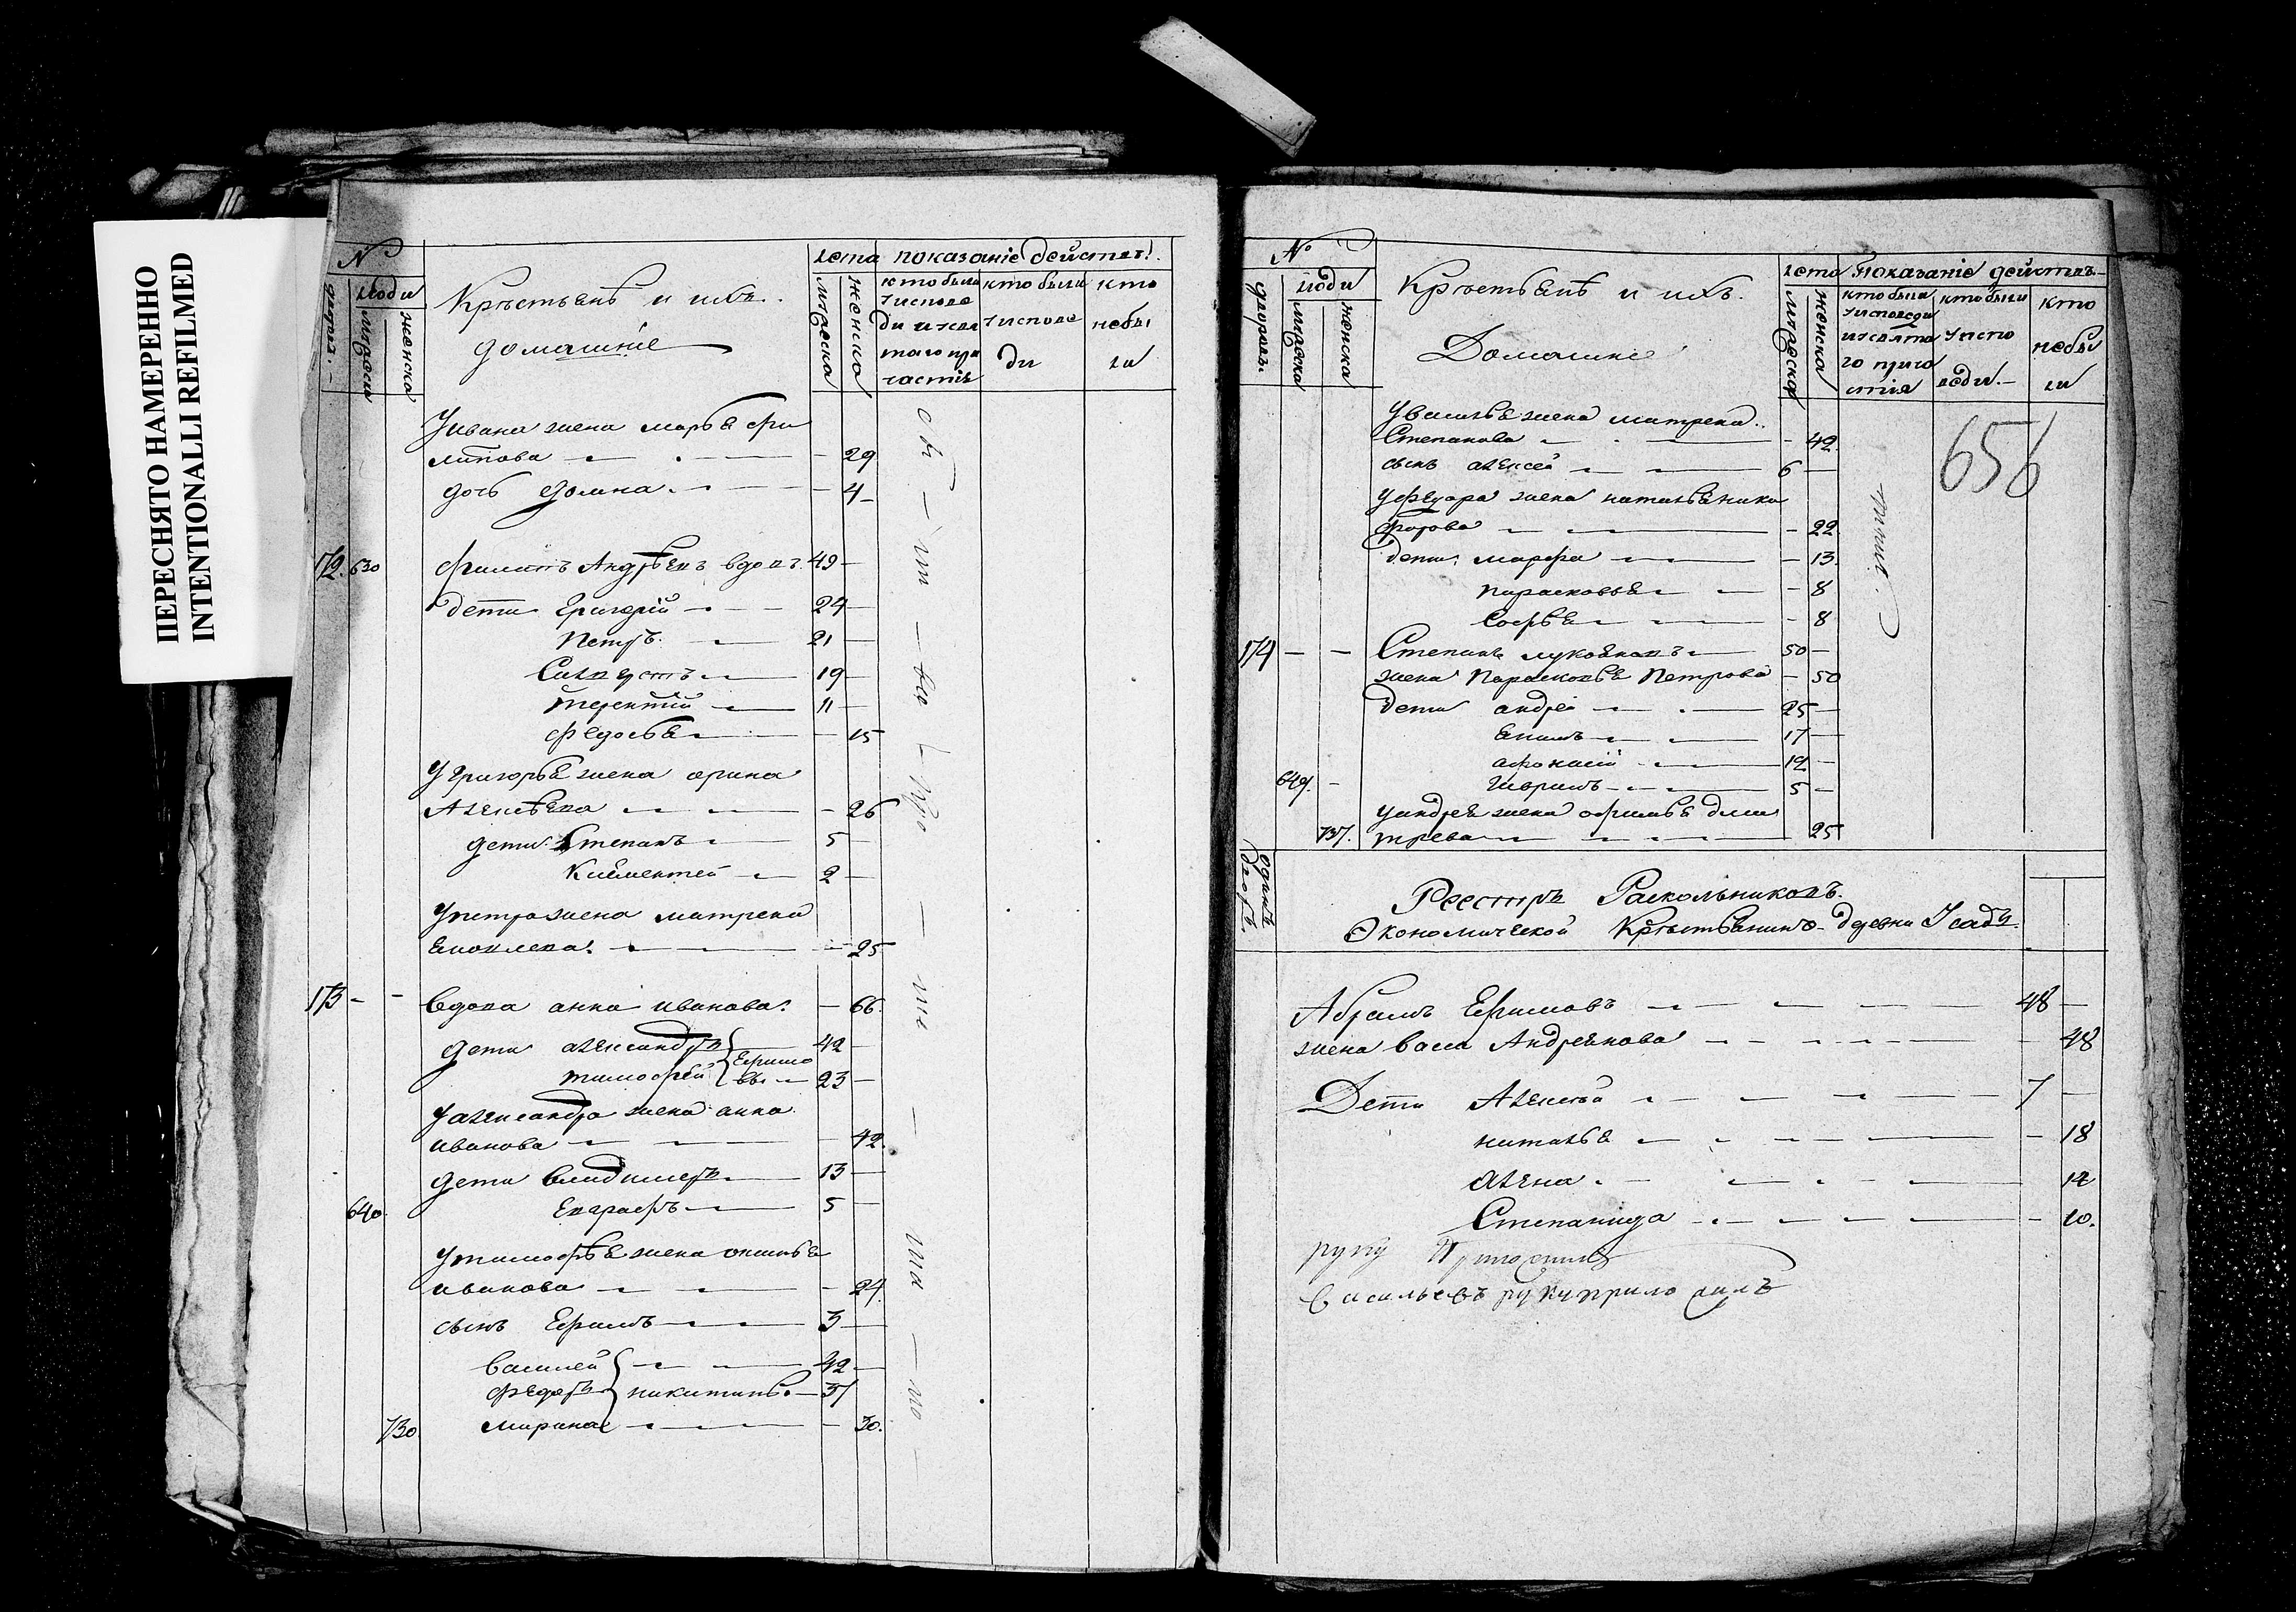 ПЕРЕСНЯТО НАМЕРЕННО
INTENTIONALLI REFILMED
№
дворов.
люди
мужеска
женска
Крестьянѣ и ихъ
домашніе
лета
мужеска
женска
показаніе действ.
кто былъ
у испове
ди и свя
таго при
частія
кто были
у испове
ди
кто
небы
ли
У Ивана жена марья фи
липова 29
дочь домна 4
172. 630 Филипъ Андрѣевъ вдовъ 49
дети Григорій 24
Петръ 21
Силвестъ 19
терентій 11
Федосья 15
У Григорья жена орина
Алексѣева 26
дети Степанъ 5
Климентей 2
У петра жена матрена
Яковлева 25
173 Вдова анна иванова 66
дети александръ 42
тимофей Ефимо
вы 23
У александра жена анна
иванова 42
дети владимеръ 13
640 Евграфъ 5
У тимофѣя жена
иванова 24
сынъ Ефимъ 3
василей 42
Федоръ никитины 37
730 марина 30
№
дворовъ
люди
мужеска
женска
Крестьянѣ и ихъ
Домашніе
лета
мужеска
женска
Показаніе действъ
кто былъ
у исповеди
и свята
го прича
стія
кто были
у испо
веди
кто
небы
ли
656
У василья жена матрена
Степанова 42
сынъ алексей 6
У Федора жена наталья ники
форова 22
дети марфа 13
парасковья 8
Софья 8
174 Степанъ 50
жена Парасковья Петрова 50
дети андрей 25
Якимъ 17
афонасій 12
649 Гаврилъ 5
У андрея жена офимья дми
737. трева 25
одинъ
дворъ
Реестръ Раскольниковъ
Экономической Крестьянинъ деревни Усадъ
Абрамъ Ефимовъ 48
жена васса Андреянова 48
Дети Алексѣй 7
наталья 18
алена 14
Степанида 10.
руку Приложилъ
Васильевъ руку приложилъ